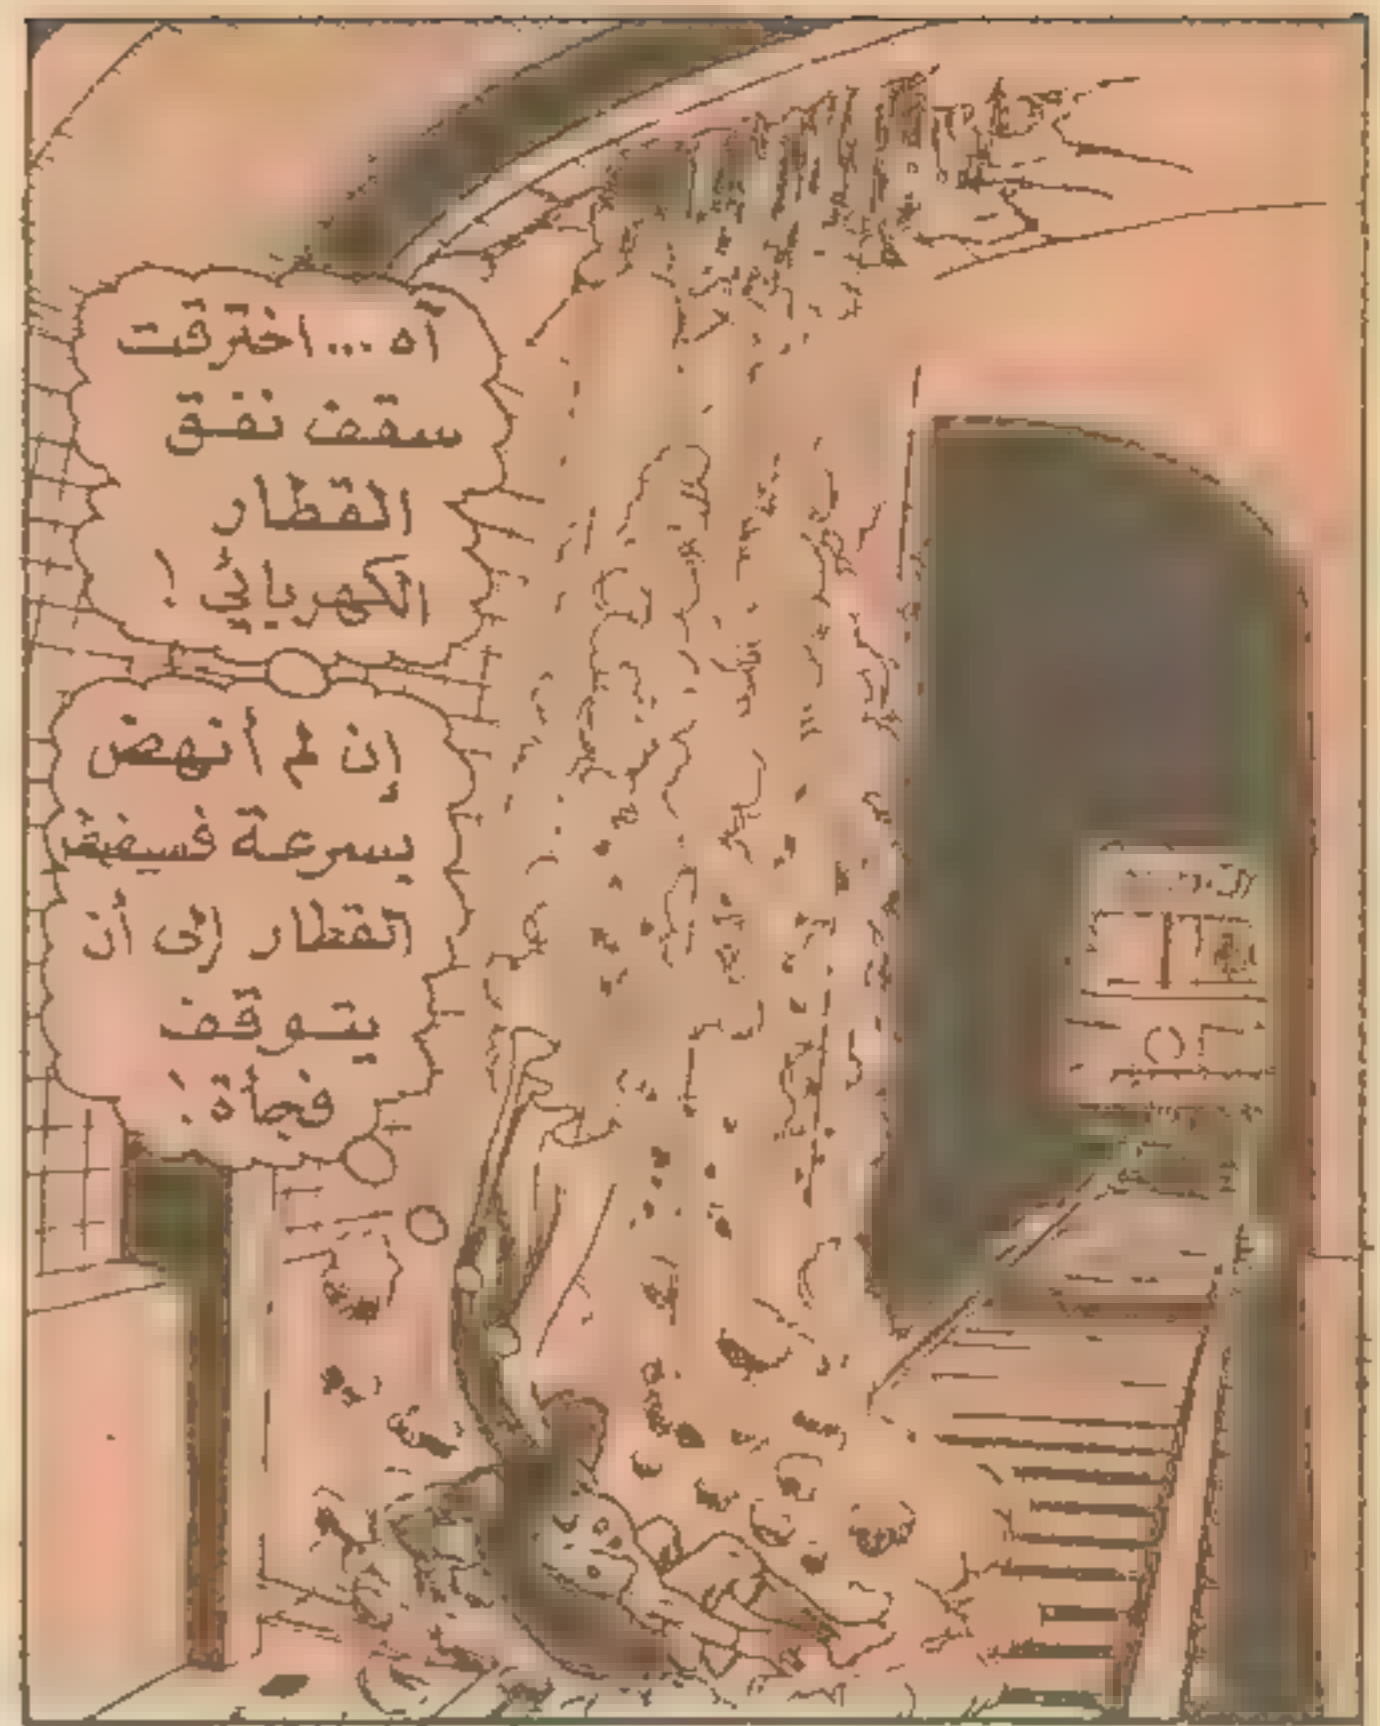 آه ... اخترقت
سقف نفق
القطار
الكهربائي !
إن لم أنهض
بسرعة فسيضطر
القطار إلى أن
يتوقف
فجأة !